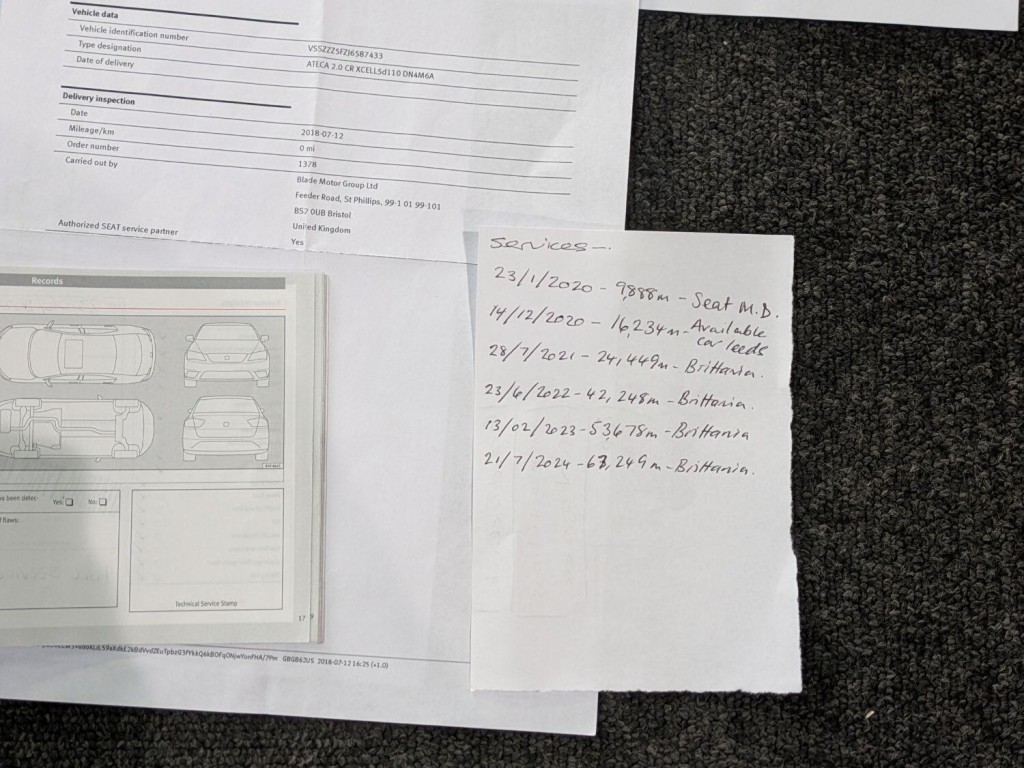 Vehicle data
Vehicle identification number VSSZZZ5FZJ6587433
Type designation ATECA 2.0 CR XCELL5d110 DN4M6A
Date of delivery
Delivery inspection
Date 2018-07-12
Mileage/km 0 mi
Order number 1378
Carried out by Blade Motor Group Ltd
Feeder Road, St Phillips, 99-1 01 99-101
BS7 0UB Bristol
United Kingdom
Authorized SEAT service partner Yes
Records
s been detec- Yes No:
f flaws:
Technical Service Stamp
17
GBGB62US 2018-07-12 16:25 (+1.0)
Services-.
23/1/2020 - 9,888m - Seat M.D.
14/12/2020 - 16,234m - Available
car leeds
28/7/2021 - 24,449m - Brittania.
23/6/2022 - 42,248m - Brittania.
13/02/2023 - 53,678m - Brittania
21/7/2024 - 63,249m - Brittania.